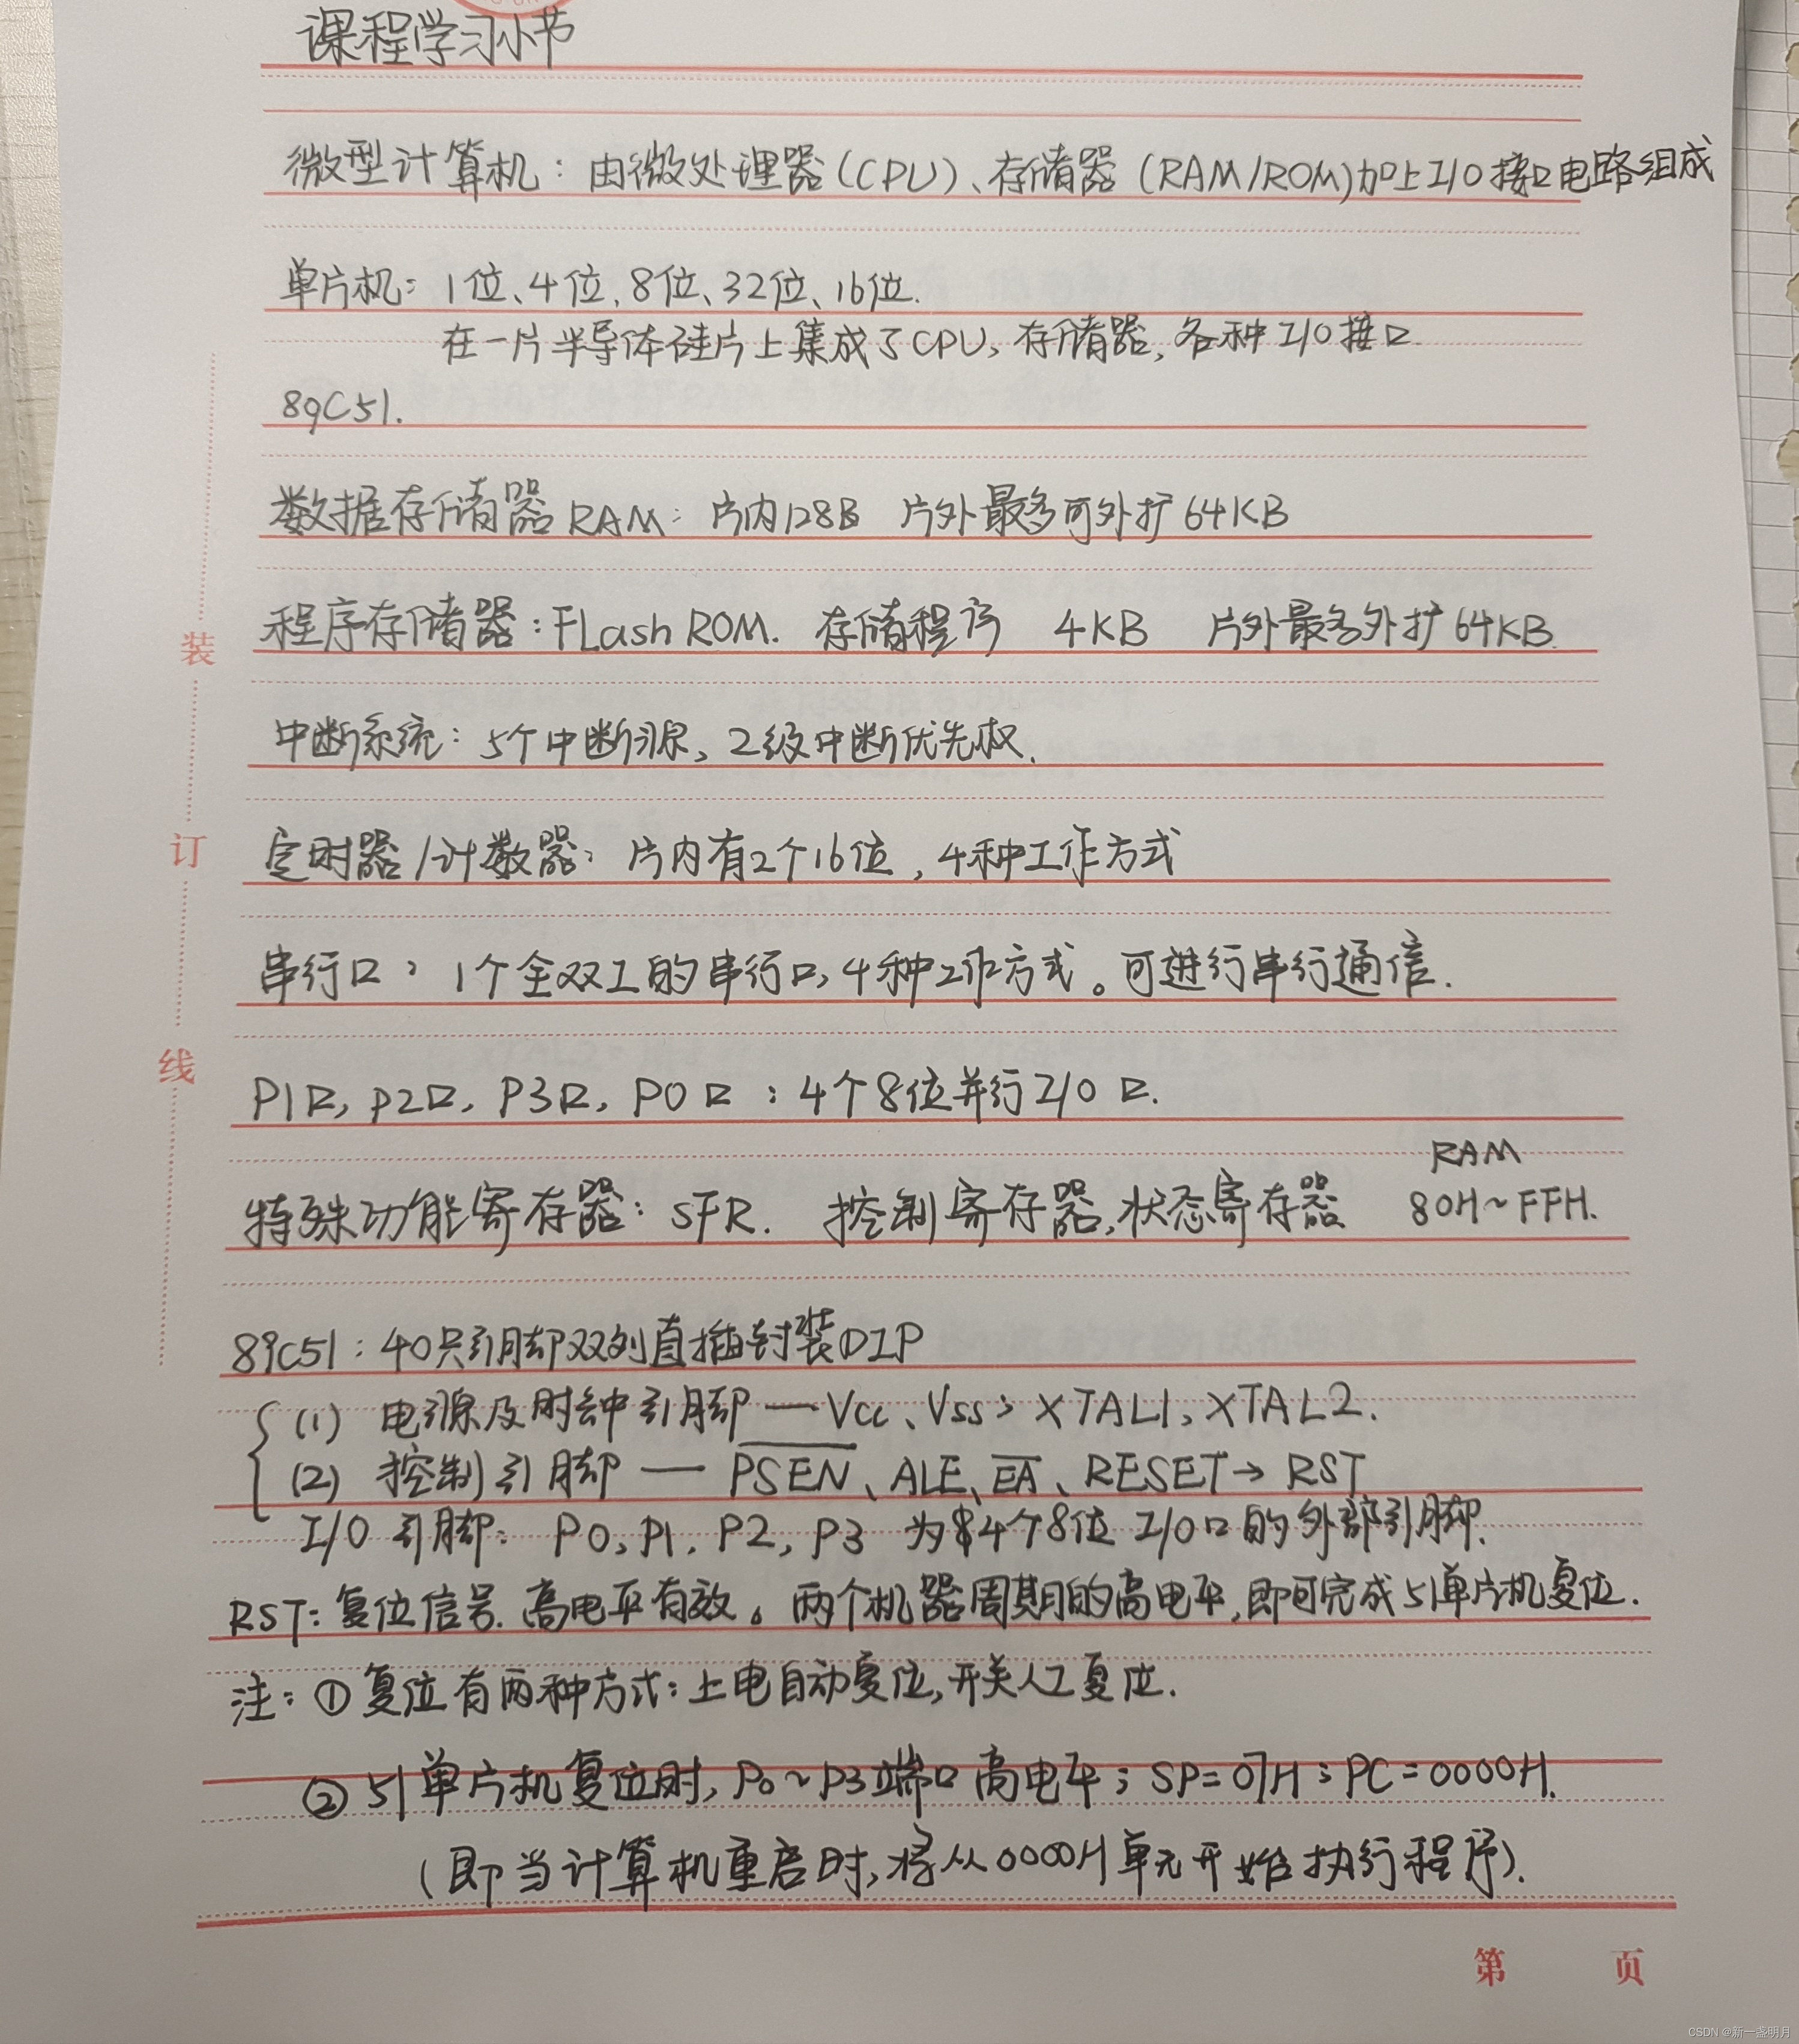 课程学习小节
微型计算机：由微处理器(CPU)、存储器(RAM/ROM)加上I/O接口电路组成
单片机：1位、4位、8位、32位、16位.
在一片半导体硅片上集成了CPU、存储器,各种I/O接口.
89C51.
数据存储器RAM：片内128B 片外最多可外扩64KB
程序存储器：FLash ROM. 存储程序 4KB 片外最多外扩64KB.
中断系统：5个中断源、2级中断优先权.
定时器/计数器：片内有2个16位,4种工作方式
串行口：1个全双工的串行口,4种工作方式。可进行串行通信.
P1口,P2口,P3口,P0口：4个8位并行I/O口.
RAM
特殊功能寄存器：SFR. 控制寄存器,状态寄存器 80H~FFH.
89C51：40只引脚双列直插封装DIP
(1) 电源及时钟引脚——Vcc、Vss；XTAL1、XTAL2.
(2) 控制引脚——PSEN、ALE、EA、RESET→RST
I/O引脚：P0,P1,P2,P3 为4个8位I/O口的外部引脚.
RST：复位信号.高电平有效。两个机器周期的高电平,即可完成51单片机复位.
注：①复位有两种方式：上电自动复位,开关人工复位.
②51单片机复位时,P0~P3端口高电平；SP=07H；PC=0000H.
(即当计算机重启时,将从0000H单元开始执行程序).
装
订
线
第 页
CSDN @新一盏明月